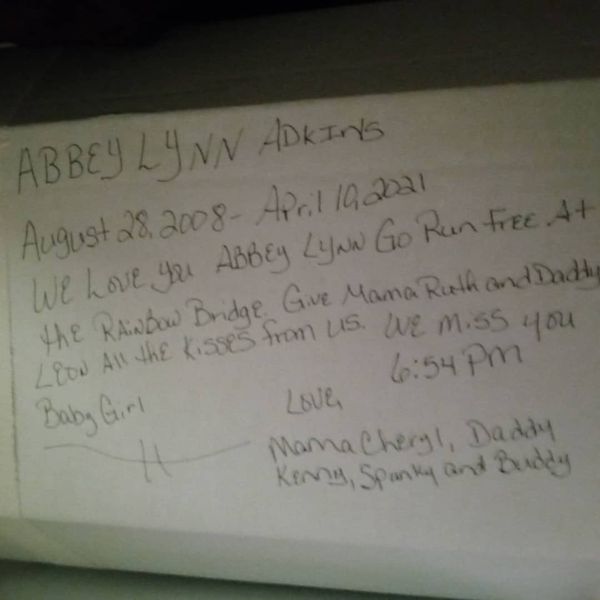 ABBEY LYNN ADKINS
August 28, 2008 - April 10, 2021
We Love you ABBEY LYNN Go Run free. At
the RAinBow Bridge. Give Mama Ruth and Daddy
Leon All the Kisses from us. We miss you
Baby Girl 6:54 PM
Love,
Mama Cheryl, Daddy
Kenny, Spanky and Buddy